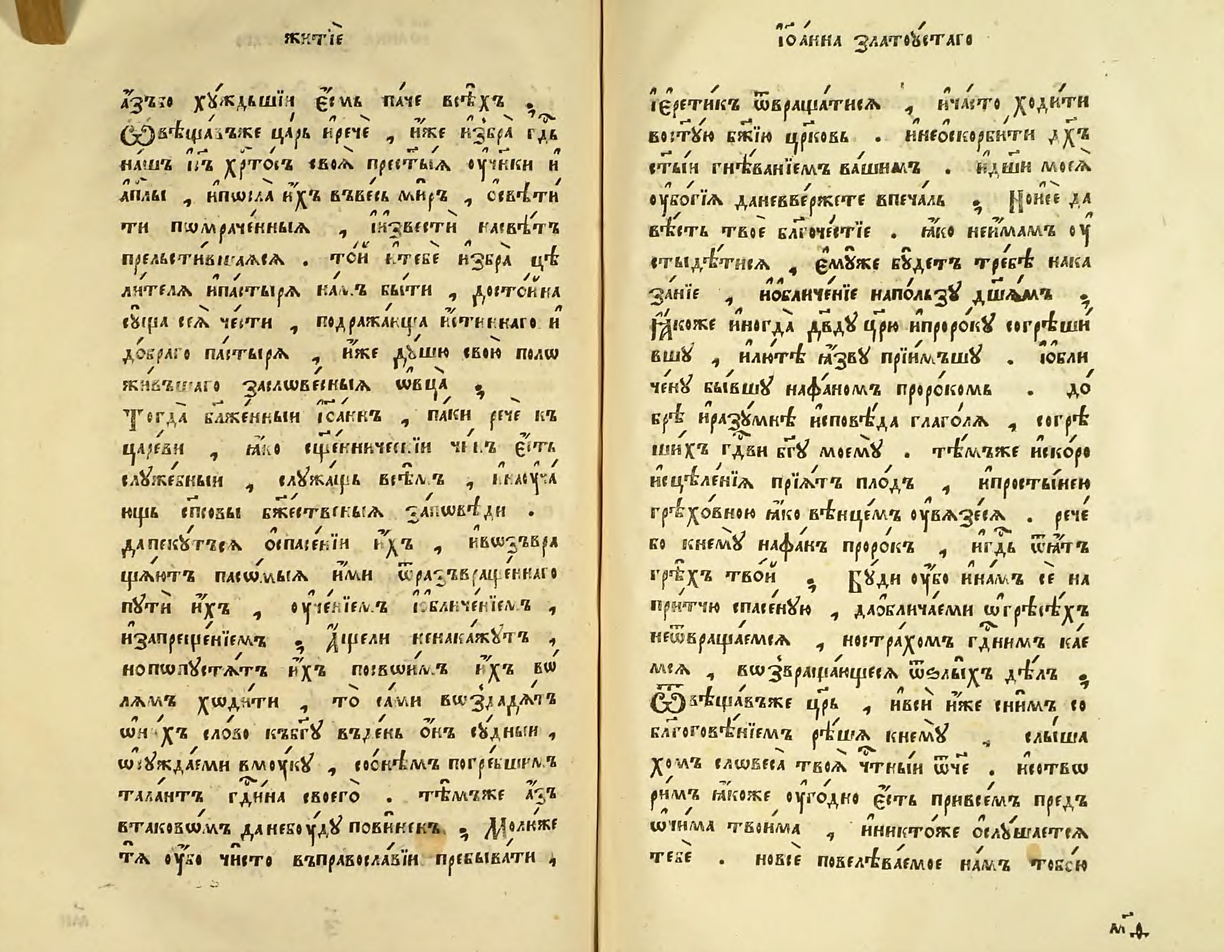 житїе
а҆зъбо хꙋждьшїи є҆смь паче всѣхъ ,
Ѿвѣщавъже царь ирече , иже избра гдь
нашъ і҆съ хртосъ своѧ престыѧ оучн҃ки и
апл҃ы , ипѡсла ихъ въвесь миръ , освѣти
ти пѡмраченныѧ , иизвести насвѣтъ
прельстившаѧсѧ . той итебѐ избра цѣ
лителѧ ипастырѧ намъ быти , достойна
сꙋща сеѧ чести , подражающа истиннаго и
добраго пастырѧ , иже дꙋшю свою поло
живъшаго заслѡвесныѧ ѡвца ,
Тогда блаженныи іѡаннъ , паки рече къ
цареви , ꙗко сщ҃енническїи чинъ єсть
слꙋжебныи , слꙋжащь всѣмъ , инаоуча
ющь спсовы бж҃ественыѧ запѡвѣди .
дапекꙋтъсѧ оспасенїи ихъ , ивѡзъвра
щѧютъ пасѡмыѧ ими ѿразъвращеннаго
пꙋти ихъ , оученїемъ іобличенїемъ ,
изапрещенїемъ , Ащели ненакажꙋтъ ,
нопѡпꙋстѧтъ ихъ посвѡимъ ихъ вѡ
лѧмъ хѡдити , то сами вѡздадѧтъ
ѡнихъ слово къбг҃ꙋ въдень онъ сꙋдныи ,
ѡсꙋждаеми вмоукꙋ , сонѣмъ погребшимъ
талантъ гдина своего . тѣмъже азъ
втаковѡмъ данебоудꙋ повиненъ , Молюже
тѧ оубо чисто въправославїи пребывати ,
іѡанна златоꙋстаго
іеретикъ ѿвращатисѧ , ичасто ходити
востꙋю бж҃їю црковь . инеоскорбити дх҃ъ
стыи гнѣванїемъ вашимъ . идш҃и моеѧ
оубогїѧ даневвержете впечаль , Ноисе да
вѣсть твое благочестїе . ꙗко неимамъ оу
стыдѣтисѧ , ємꙋже бꙋдетъ требѣ нака
занїе , иобличенїе напользꙋ дш҃амъ ,
Ꙗкоже иногда дв҃дꙋ црю ипророкꙋ согрѣши
вшꙋ , илютѣ ꙗзвꙋ прїимъшꙋ . іобли
ченꙋ бывшꙋ нафаномъ пророкомь . до
брѣ иразꙋмнѣ исповѣда глаголѧ , согрѣ
шихъ гдви бг҃ꙋ моемꙋ . тѣмъже искоро
исцѣленїѧ прїѧтъ плодъ , ипростынею
грѣховною ꙗко вѣнцемъ оувѧзесѧ . рече
бо кнемꙋ нафанъ пророкъ , игдь ѿѧтъ
грѣхъ твой , Бꙋди оубо инамъ се на
притчю спасенꙋю , даобличаеми ѡгрѣсѣхъ
неѿвращаемсѧ , нострахомъ гднимъ кае
мсѧ , вѡзвращающесѧ ѿѕлыхъ дѣлъ ,
Ѿвѣщавъже црь , ивси иже снимъ со
благоговѣнїемъ рѣша кнемꙋ , слыша
хомъ слѡвеса твоѧ чтныи ѿче . исотвѡ
римъ ꙗкоже оугодно єсть привсемъ предъ
ѡчима твоима , иниктоже ослꙋшаетсѧ
тебе . новсе повелѣваемое намъ тобою